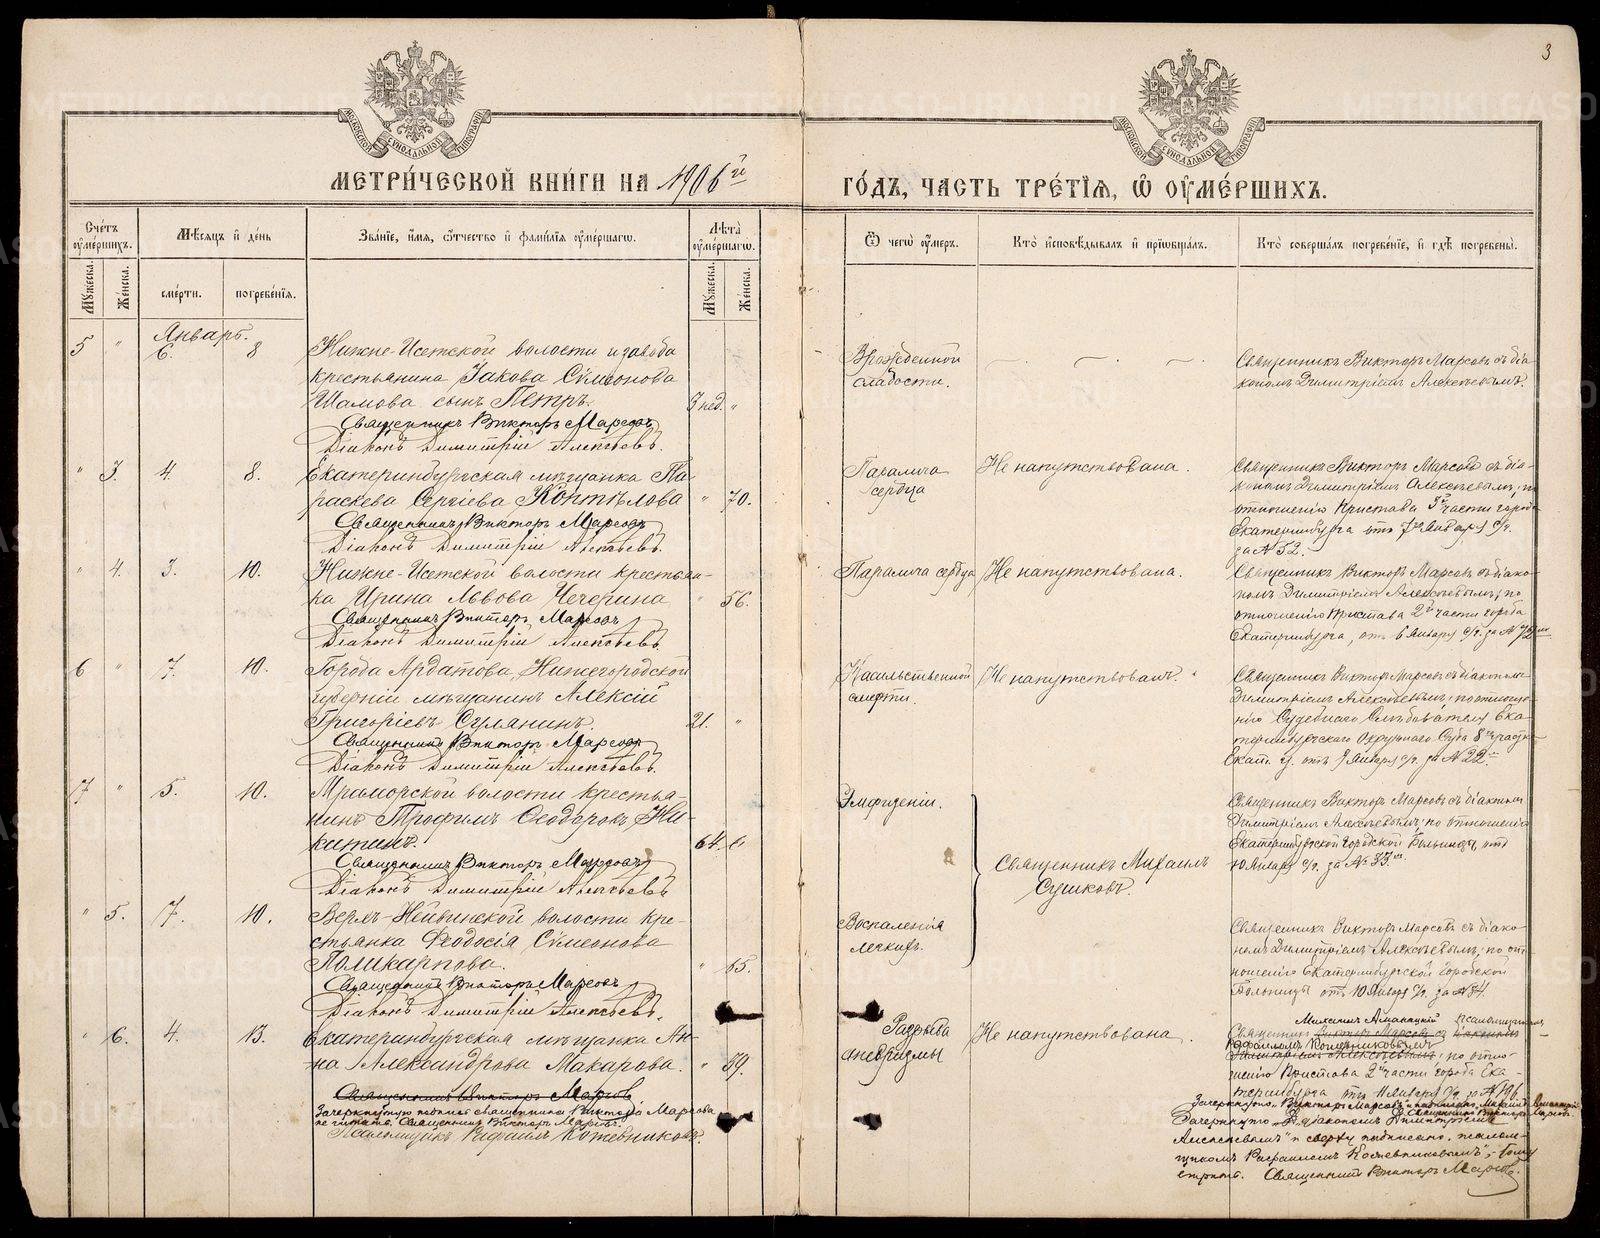 3
МЕТРИ́ЧЕСКОЙ КНИ́ГИ НА 1906й
ГО́ДЪ, ЧАСТЬ ТРЕ́ТІЯ, Ѿ ОУМЕ́РШИХЪ.
Сче́тъ оуме́ршихъ.
Мѣ́сяцъ и де́нь
Зва́ніе, и́мя, о́тчество и фами́лія оуме́ршагѡ.
Лѣ́та оуме́ршагѡ.
Ѿ чегѡ̀ оу́меръ.
Кто̀ исповѣ́дывалъ и пріѡбща́лъ.
Кто̀ соверша́лъ погребе́ніе, и гдѣ̀ погребены̀.
Мужеска.
Женска.
сме́рти.
погребе́нія.
Мужеска.
Женска.
Январь.
5 " 6. 8
Нижне-Исетской волости и завода
крестьянина Іакова Сѵмеонова
Шамова сынъ Петръ.
3 нед. "
Священникъ Викторъ Марсовъ
Діаконъ Димитрій Алексѣевъ.
Врожденной
слабости.
Священникъ Викторъ Марсовъ съ діа-
кономъ Димитріемъ Алексѣевымъ.
" 3. 4. 8.
Екатеринбургская мѣщанка Па-
раскева Сергіева Коптѣлова
" 70.
Священникъ Викторъ Марсовъ
Діаконъ Димитрій Алексѣевъ.
Паралича
сердца
Не напутствована.
Священникъ Викторъ Марсовъ съ діа-
кономъ Димитріемъ Алексѣевымъ, по
отношенію Пристава 3й части города
Екатеринбурга отъ 7го Января с/г.
за № 52.
" 4. 3. 10.
Нижне-Исетской волости крестьян-
ка Ирина Львова Чечерина
" 56.
Священникъ Викторъ Марсовъ
Діаконъ Димитрій Алексѣевъ.
Паралича сердца
Не напутствована.
Священникъ Викторъ Марсовъ съ діако-
номъ Димитріемъ Алексѣевымъ, по
отношенію Пристава 2й части города
Екатеринбурга, отъ 6 Января с/г. за №
6 " 7. 10.
Города Ардатова, Нижегородской
губерніи мѣщанинъ Алексій
Григоріевъ Сулянинъ.
21. "
Священникъ Викторъ Марсовъ
Діаконъ Димитрій Алексѣевъ.
Насильственной
смерти.
Не напутствованъ.
Священникъ Викторъ Марсовъ съ діакономъ
Димитріемъ Алексѣевымъ, по отноше-
нію Судебнаго Слѣдователя Ека-
теринбургскаго Окружнаго Суда 8го участка
Екат. у. отъ 9 Января с/г. за № 22.
7 " 5. 10.
Мраморской волости крестья-
нинъ Трофимъ Ѳеодоровъ Ни-
китинъ.
64. "
Священникъ Викторъ Марсовъ
Діаконъ Димитрій Алексѣевъ
Эмфиземы.
Священникъ Михаилъ
Сушковъ.
Священникъ Викторъ Марсовъ съ діакономъ
Димитріемъ Алексѣевымъ, по отношенію
Екатеринбургской Городской Больницы отъ
10 Января с/г. за № 33.
" 5. 7. 10.
Верхъ-Нейвинской волости кре-
стьянка Ѳеодосія Сѵмеонова
Поликарпова.
" 65.
Священникъ Викторъ Марсовъ
Діаконъ Димитрій Алексѣевъ.
Воспаленія
легкихъ.
Священникъ Викторъ Марсовъ съ діако-
номъ Димитріемъ Алексѣевымъ, по от-
ношенію Екатеринбургской Городской
Больницы отъ 10 Января с/г. за № 34.
" 6. 4. 13.
Екатеринбургская мѣщанка Ан-
на Александрова Макарова.
" 59.
Священникъ Викторъ Марсовъ
Зачеркнутую подпись священника Виктора Марсова
не читать. Священникъ Викторъ Марсовъ.
Псаломщикъ Рафаилъ Кожевниковъ.
Разрыва
аневризмы
Не напутствована.
Михаилъ псаломщикомъ
Священникъ Викторъ Марсовъ съ діакономъ
Рафаиломъ Кожевниковымъ
Димитріемъ Алексѣевымъ, по отно-
шенію Пристава 2й части города Ека-
теринбурга отъ 11 Января с/г за № 196.
Зачеркнуто „Викторъ Марсовъ"
Священникъ Викторъ Марсовъ.
Зачеркнуто „діакономъ Димитріемъ
Алексѣевымъ" и сверху надписано „псалом-
щикомъ Рафаиломъ Кожевниковымъ",
Священникъ Викторъ Марсовъ.